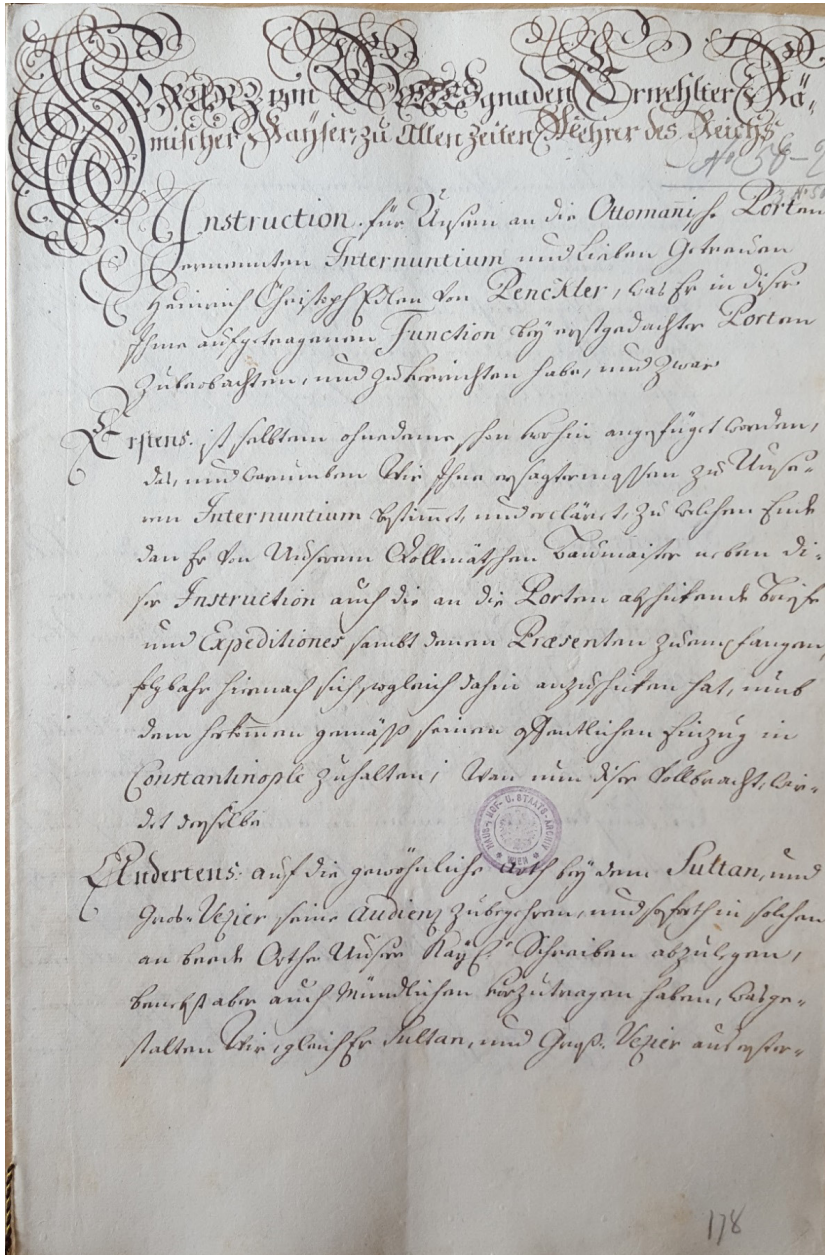 FRANZ von Gottes gnaden Erwehlter Rö-
mischer Kayser, zu Allen zeiten Mehrer des Reichs
No 58-2
Instruction für Unsern an die Ottomanische Porten
ernennten Internuntium und Lieben Getreuen
Heinrich Christoph Edlen von Penckler, was Er in diser
Ihme aufgetragenen Function bey erstgedachter Porten
zubeobachten, und zuverrichten habe, und zwar
Erstens ist selbtem ohnedeme schon vorhin angefüget worden,
das, und warumben Wir Ihne ersagtermassen zu Unse-
rem Internuntium bestimmet, und erkläret, zu welchen Ende
dan Er von Unserem Dollmätschen Baumaister neben di-
ser Instruction auch die an die Porten abschikende Briefe
und Expeditiones sambt denen Præsenten zuempfangen,
folgbahr hiernach sich sogleich dahin anzuschiken hat, umb
dem herkommen gemäß seinen offentlichen Einzug in
Constantinople zuhalten; Wan nun diser vollbracht, wir-
det derselbe
Andertens auf die gewöhnliche Arth bey dem Sultan, und
Gros-Vezier seine Audienz zubegehren, und soforth in solchen
an beede Orthe Unsere Kay: Schreiben abzulegen,
benebst aber auch Mündlichen vorzutragen haben, wasge-
stalten Wir, gleich Er Sultan, und Groß-Vezier aus erster-
HAUS-, HOF- U. STAATS-ARCHIV
WIEN
178